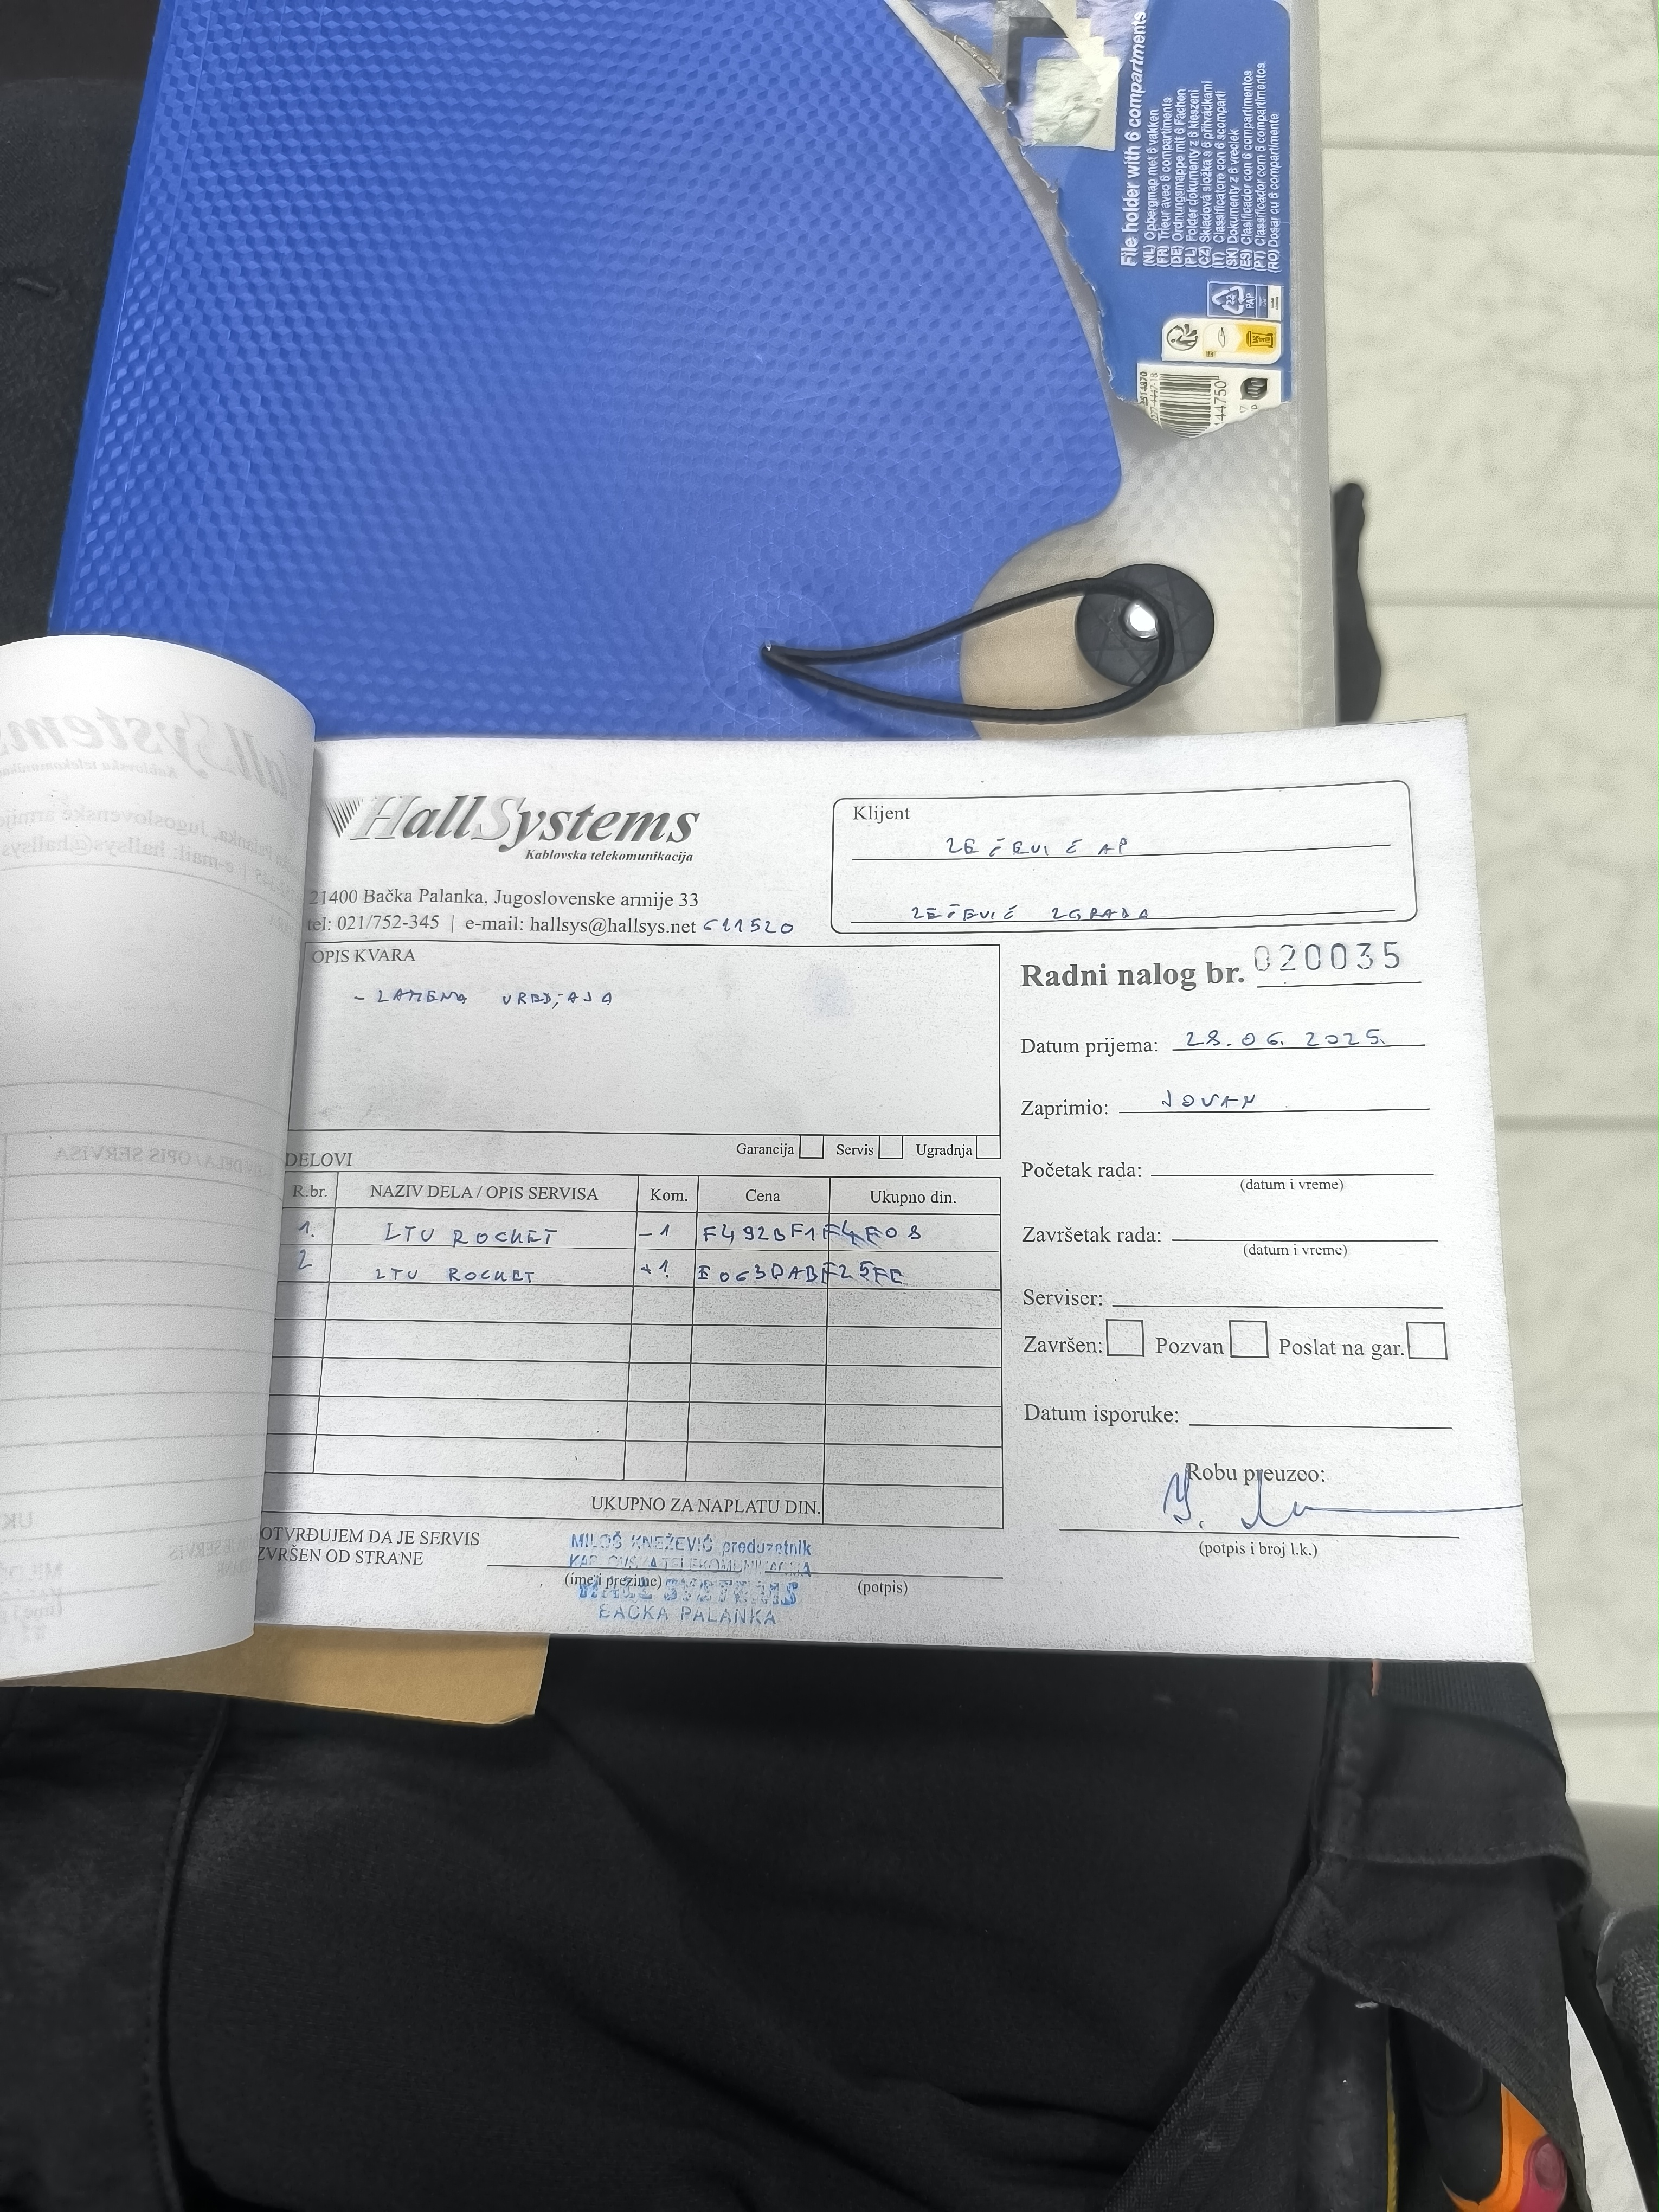 File holder with 6 compartments
(NL) Opbergmap met 6 vakken
(FR) Trieur avec 6 compartiments
(DE) Ordnungsmappe mit 6 Fachen
(PL) Folder dokumenty z 6 kieszeni
(CZ) Skladová složka s 6 přihrádkami
(IT) Classificatore con 6 scomparti
(SK) Dokumenty z 6 vreciek
(ES) Clasificador con 6 compartimentos
(PT) Classificador com 6 compartimentos
(RO) Dosar cu 6 compartimente
22
PAP
2514870
44750
HallSystems
Kablovska telekomunikacija
21400 Bačka Palanka, Jugoslovenske armije 33
tel: 021/752-345 | e-mail: hallsys@hallsys.net 611520
Klijent
ZEČEVIĆ AP
ZEČEVIĆ ZGRADA
OPIS KVARA
- ZAMENA UREĐAJA
Garancija Servis Ugradnja
DELOVI
R.br. NAZIV DELA / OPIS SERVISA Kom. Cena Ukupno din.
1. LTU ROCKET -1 F492BF1F4F08
2 LTU ROCKET +1 E063DABF25FC
UKUPNO ZA NAPLATU DIN.
OTVRĐUJEM DA JE SERVIS
ZVRŠEN OD STRANE
(ime i prezime) (potpis)
MILOŠ KNEŽEVIĆ preduzetnik
KABLOVSKA TELEKOMUNIKACIJA
HALL SYSTEMS
BAČKA PALANKA
Radni nalog br. 020035
Datum prijema: 28.06.2025.
Zaprimio: JOVAN
Početak rada:
(datum i vreme)
Završetak rada:
(datum i vreme)
Serviser:
Završen: Pozvan Poslat na gar.
Datum isporuke:
Robu preuzeo:
(potpis i broj l.k.)